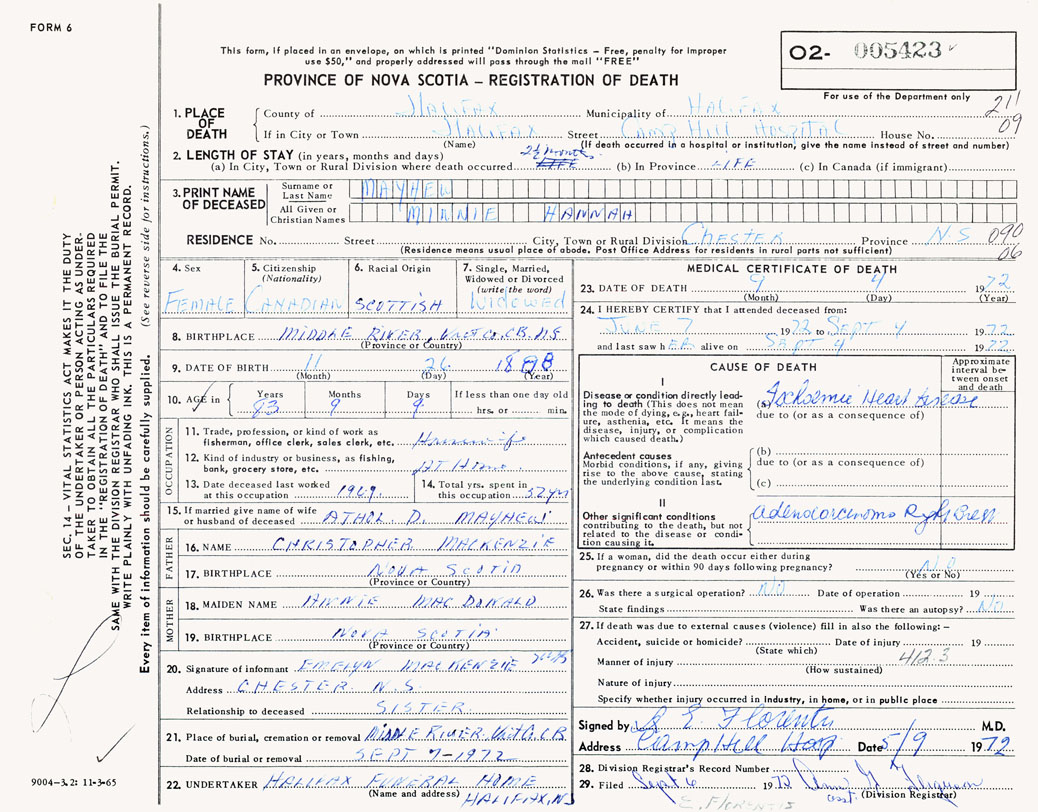 FORM 6
This form, if placed in an envelope, on which is printed "Dominion Statistics – Free, penalty for improper
use $50," and properly addressed will pass through the mail "FREE"
PROVINCE OF NOVA SCOTIA – REGISTRATION OF DEATH
O2- 005423
For use of the Department only
211
09
1. PLACE OF DEATH
County of HALIFAX Municipality of HALIFAX
If in City or Town HALIFAX Street CAMP HILL HOSPITAL House No.
(Name) (If death occurred in a hospital or institution, give the name instead of street and number)
2. LENGTH OF STAY (in years, months and days) 2½ months
(a) In City, Town or Rural Division where death occurred LIFE (b) In Province LIFE (c) In Canada (if immigrant)
3. PRINT NAME OF DECEASED
Surname or Last Name MAYHEW
All Given or Christian Names MINNIE HANNAH
RESIDENCE No. Street City, Town or Rural Division CHESTER Province N.S 090
(Residence means usual place of abode. Post Office Address for residents in rural parts not sufficient) 06
4. Sex FEMALE
5. Citizenship (Nationality) CANADIAN
6. Racial Origin SCOTTISH
7. Single, Married, Widowed or Divorced (write the word) WIDOWED
8. BIRTHPLACE MIDDLE RIVER, Vict Co, C.B. N.S
(Province or Country)
9. DATE OF BIRTH 11 26 1888
(Month) (Day) (Year)
10. AGE in Years 83 Months 9 Days 9 If less than one day old hrs. or min.
OCCUPATION
11. Trade, profession, or kind of work as fisherman, office clerk, sales clerk, etc. Housewife
12. Kind of industry or business, as fishing, bank, grocery store, etc. AT Home
13. Date deceased last worked at this occupation 1969
14. Total yrs. spent in this occupation 52 yrs
15. If married give name of wife or husband of deceased ATHOL D. MAYHEW
FATHER
16. NAME CHRISTOPHER MACKENZIE
17. BIRTHPLACE NOVA SCOTIA
(Province or Country)
MOTHER
18. MAIDEN NAME ANNIE MAC DONALD
19. BIRTHPLACE NOVA SCOTIA
(Province or Country)
20. Signature of informant EMELYN MACKENZIE
Address CHESTER N.S.
Relationship to deceased SISTER
21. Place of burial, cremation or removal MIDDLE RIVER. Vict Co. C.B.
Date of burial or removal SEPT 7-1972
22. UNDERTAKER HALIFAX FUNERAL HOME
(Name and address) HALIFAX, N.S
MEDICAL CERTIFICATE OF DEATH
23. DATE OF DEATH 9 4 1972
(Month) (Day) (Year)
24. I HEREBY CERTIFY that I attended deceased from:
JUNE 7 1972 to SEPT 4 1972
and last saw hER alive on SEPT 4 1972
CAUSE OF DEATH
Approximate interval between onset and death
I
Disease or condition directly leading to death (This does not mean the mode of dying, e.g., heart failure, asthenia, etc. It means the disease, injury, or complication which caused death.)
(a) Ischaemic Heart disease
due to (or as a consequence of)
Antecedent causes
Morbid conditions, if any, giving rise to the above cause, stating the underlying condition last.
(b)
due to (or as a consequence of)
(c)
II
Other significant conditions contributing to the death, but not related to the disease or condition causing it.
adenocarcinoma Right Breast
25. If a woman, did the death occur either during
pregnancy or within 90 days following pregnancy? NO
(Yes or No)
26. Was there a surgical operation? NO Date of operation 19
State findings Was there an autopsy? NO
27. If death was due to external causes (violence) fill in also the following: –
Accident, suicide or homicide? Date of injury 19
(State which)
Manner of injury 412.3
(How sustained)
Nature of injury
Specify whether injury occurred in industry, in home, or in public place
Signed by S E Florentz M.D.
Address Camp Hill Hosp Date 5/9 1972
28. Division Registrar's Record Number
29. Filed Sept 6 1972 Ferguson
asst. (Division Registrar)
SEC. 14 – VITAL STATISTICS ACT MAKES IT THE DUTY
OF THE UNDERTAKER OR PERSON ACTING AS UNDER-
TAKER TO OBTAIN ALL THE PARTICULARS REQUIRED
IN THE "REGISTRATION OF DEATH" AND TO FILE THE
SAME WITH THE DIVISION REGISTRAR WHO SHALL ISSUE THE BURIAL PERMIT.
WRITE PLAINLY WITH UNFADING INK. THIS IS A PERMANENT RECORD.
Every item of information should be carefully supplied. (See reverse side for instructions.)
9004–3.2: 11-3-65